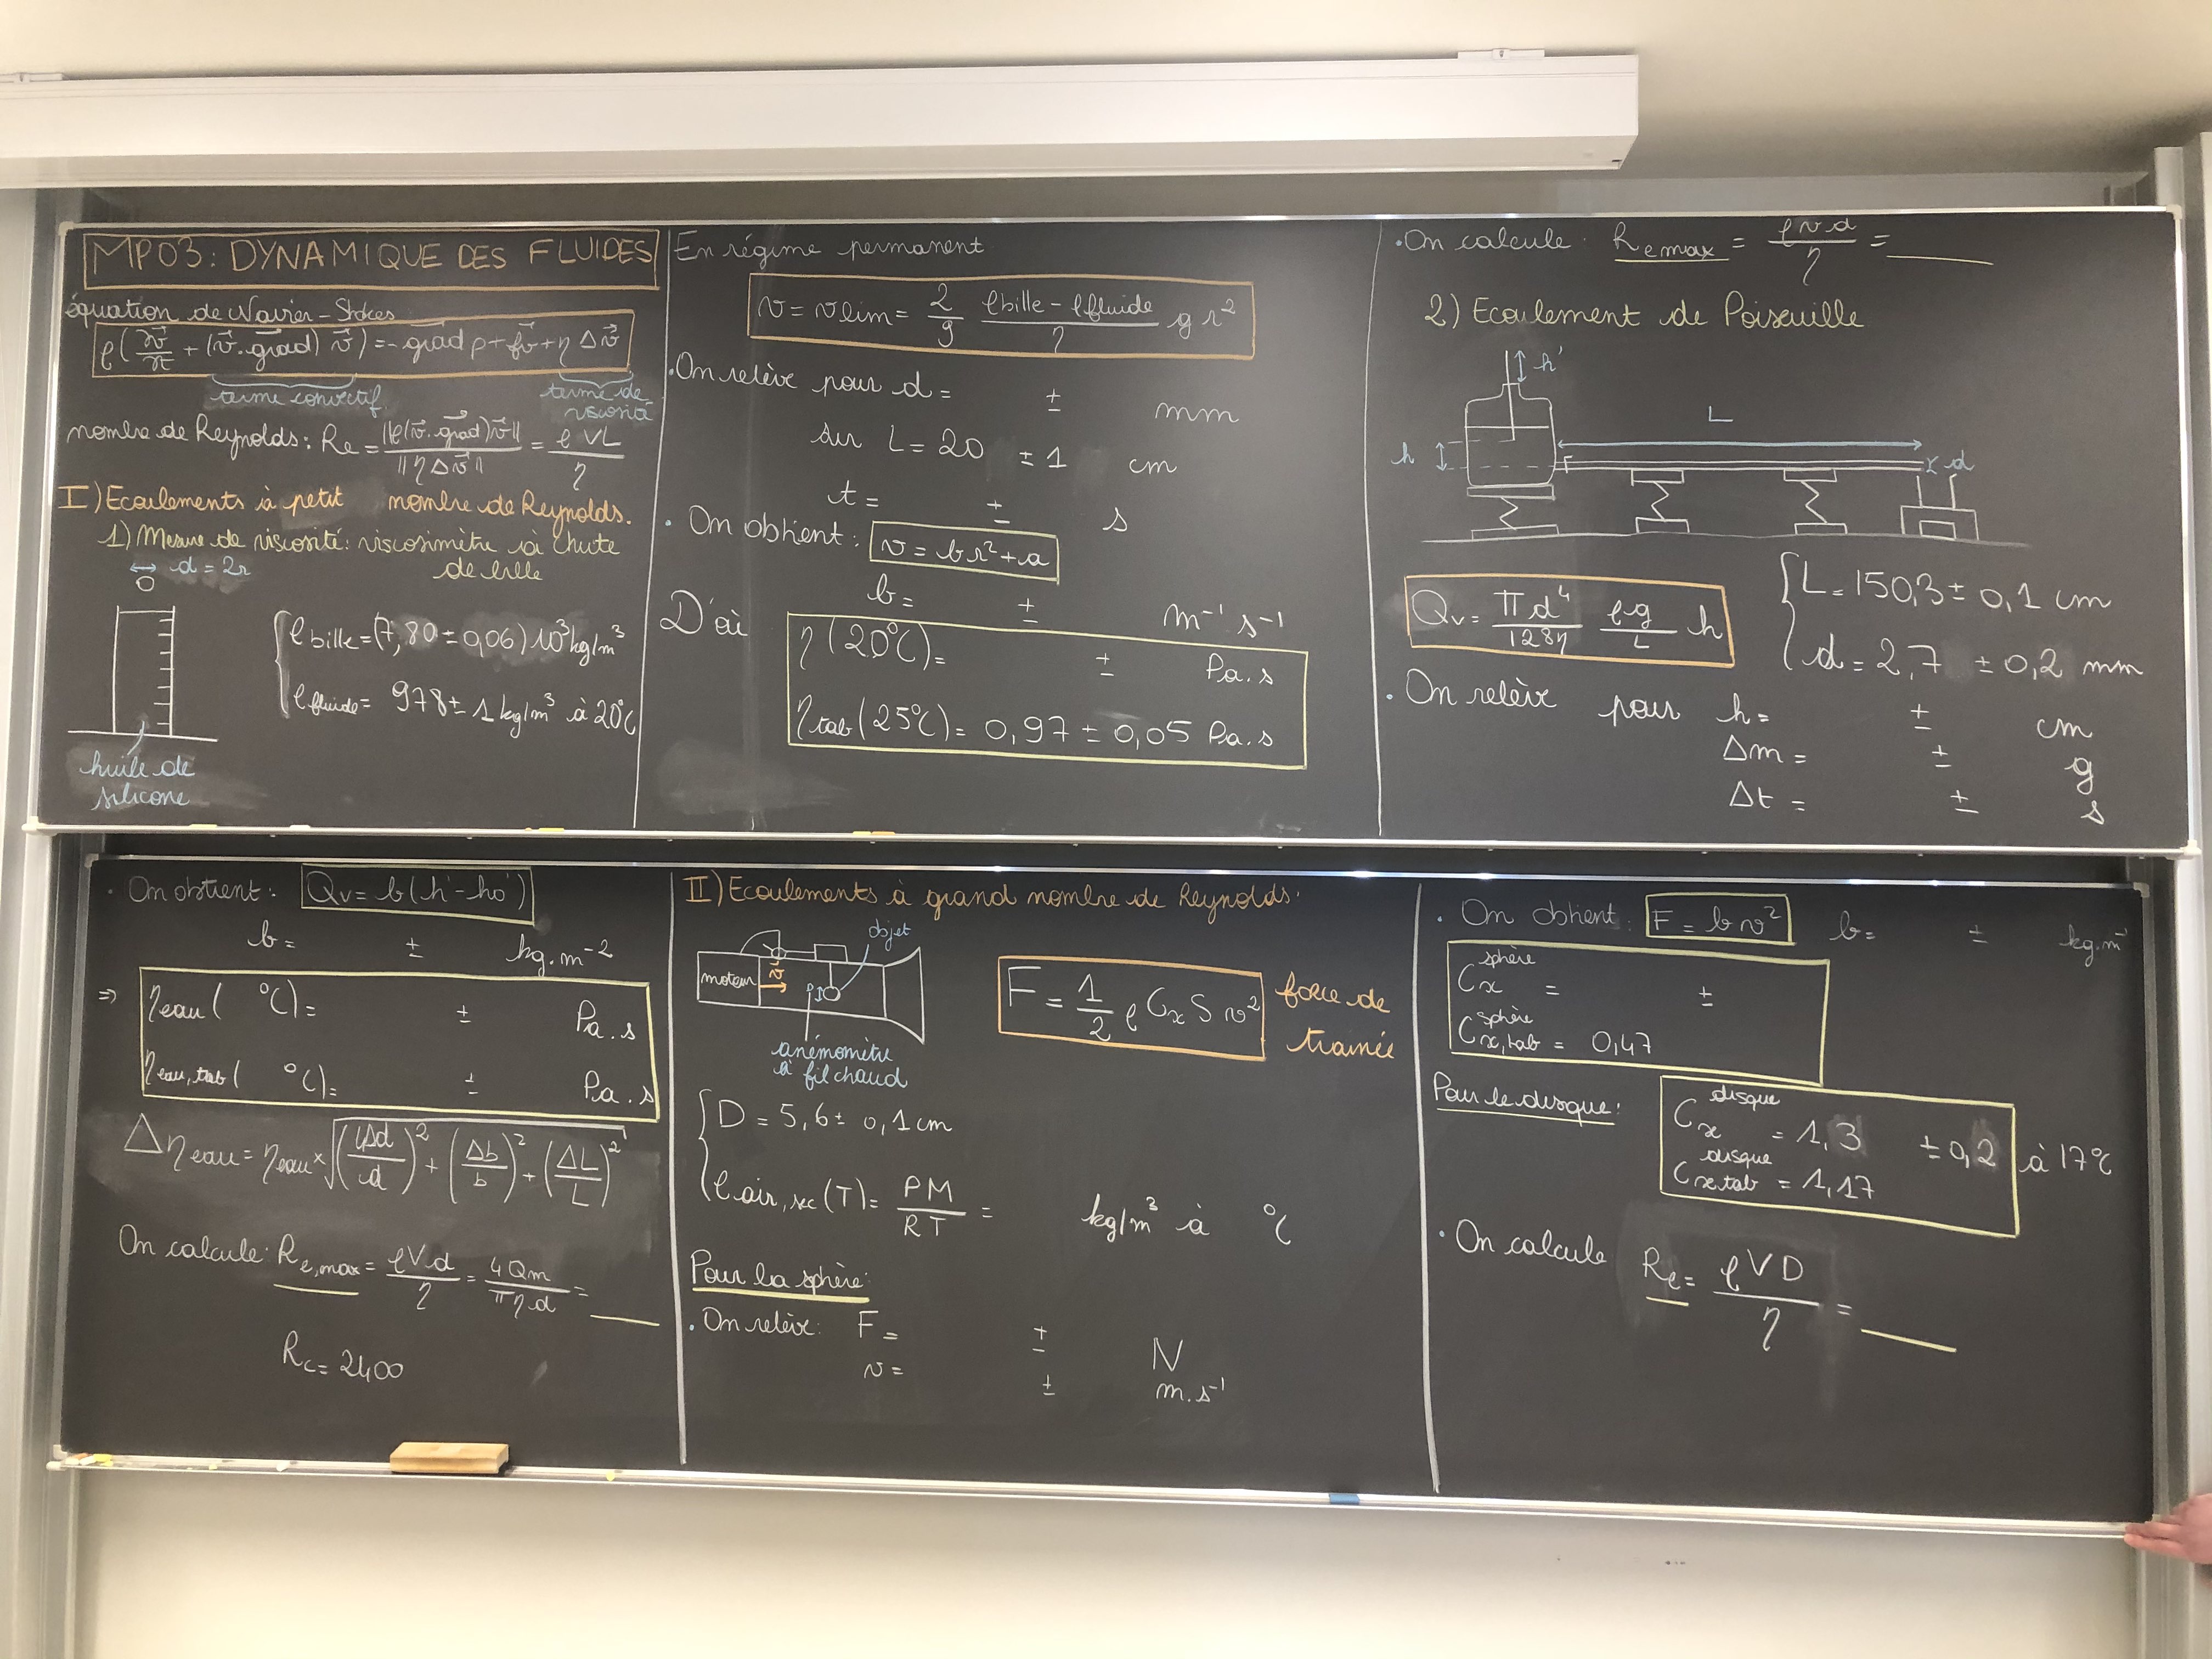 MP03: DYNAMIQUE DES FLUIDES
équation de Navier-Stokes
ρ(∂v⃗/∂t + (v⃗.grad⃗) v⃗) = -grad⃗ p + f⃗v + η Δv⃗
terme convectif
terme de
viscosité
nombre de Reynolds: Re = ||ρ(v⃗.grad⃗)v⃗|| / ||ηΔv⃗|| = ρVL/η
I) Ecoulements à petit nombre de Reynolds.
1) Mesure de viscosité: viscosimètre à chute
de bille
d = 2r
ρbille = (7,80 ± 0,06) 10³ kg/m³
ρfluide = 978 ± 1 kg/m³ à 20°C
huile de
silicone
En régime permanent
v = vlim = 2/9 (ρbille - ρfluide)/η g r²
• On relève pour d = ± mm
sur L = 20 ± 1 cm
t = ± s
• On obtient: v = br² + a
b = ± m⁻¹ s⁻¹
D'où
η(20°C) = ± Pa.s
ηtab(25°C) = 0,97 ± 0,05 Pa.s
• On calcule: Remax = ρvd/η =
2) Ecoulement de Poiseuille
h'
L
h
d
Qv = πd⁴/128η ρg/L h
L = 150,3 ± 0,1 cm
d = 2,7 ± 0,2 mm
• On relève pour h = ± cm
Δm = ± g
Δt = ± s
• On obtient: Qv = b(h'-ho')
b = ± kg.m⁻²
⇒ ηeau( °C) = ± Pa.s
ηeau,tab( °C) = ± Pa.s
Δηeau = ηeau × √((4Δd/d)² + (Δb/b)² + (ΔL/L)²)
On calcule: Re,max = ρVd/η = 4Qm/πηd =
Rc = 2400
II) Ecoulements à grand nombre de Reynolds.
objet
moteur
v⃗
anémomètre
à fil chaud
F = 1/2 ρ Cx S v²
force de
trainée
D = 5,6 ± 0,1 cm
ρair,sec(T) = PM/RT = kg/m³ à °C
Pour la sphère:
• On relève: F = ± N
v = ± m.s⁻¹
• On obtient: F = bv² b = ± kg.m⁻¹
Cx sphère = ±
Cx,tab sphère = 0,47
Pour le disque:
Cx disque = 1,3 ± 0,2 à 17°C
Cx,tab disque = 1,17
• On calcule Re = ρVD/η =